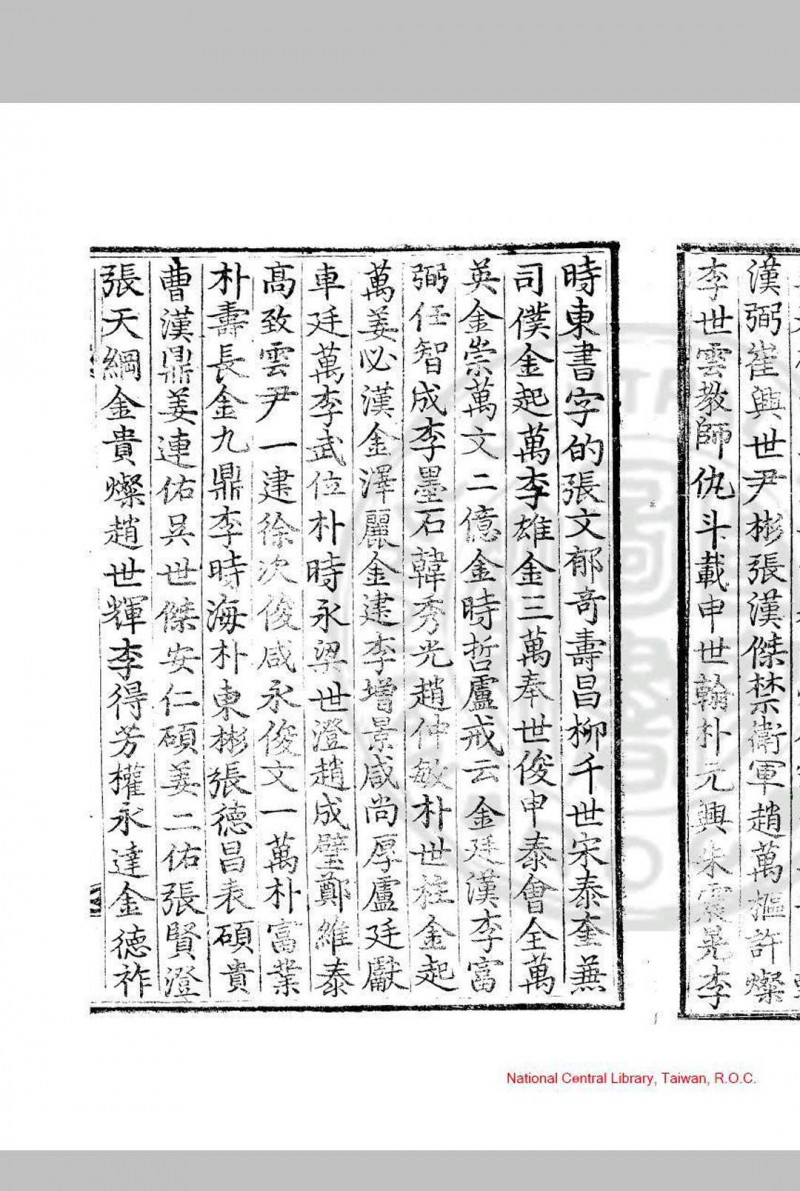 漢弼崔興世尹彬張漢傑禁衛軍趙萬樞許燦
李世雲教師仇斗載申世翰朴元興朱震晃李
時東書字的張文郁奇壽昌柳千世宋泰奎兼
司僕金起萬李雄金三萬奉世俊申泰會全萬
英金崇萬文二億金時哲盧戒云金廷漢李富
弼任智成李墨石韓秀光趙仲敏朴世柱金起
萬姜必漢金澤麗金建李增景咸尚厚盧廷獻
車廷萬李武位朴時永梁世澄趙成璧鄭維泰
高致雲尹一建徐次俊咸永俊文一萬朴富業
朴壽長金九鼎李時海朴東彬張德昌表碩貴
曹漢鼎姜連佑吳世傑安仁碩姜二佑張賢澄
張天綱金貴燦趙世輝李得芳權永達金德祚
National Central Library, Taiwan, R.O.C.